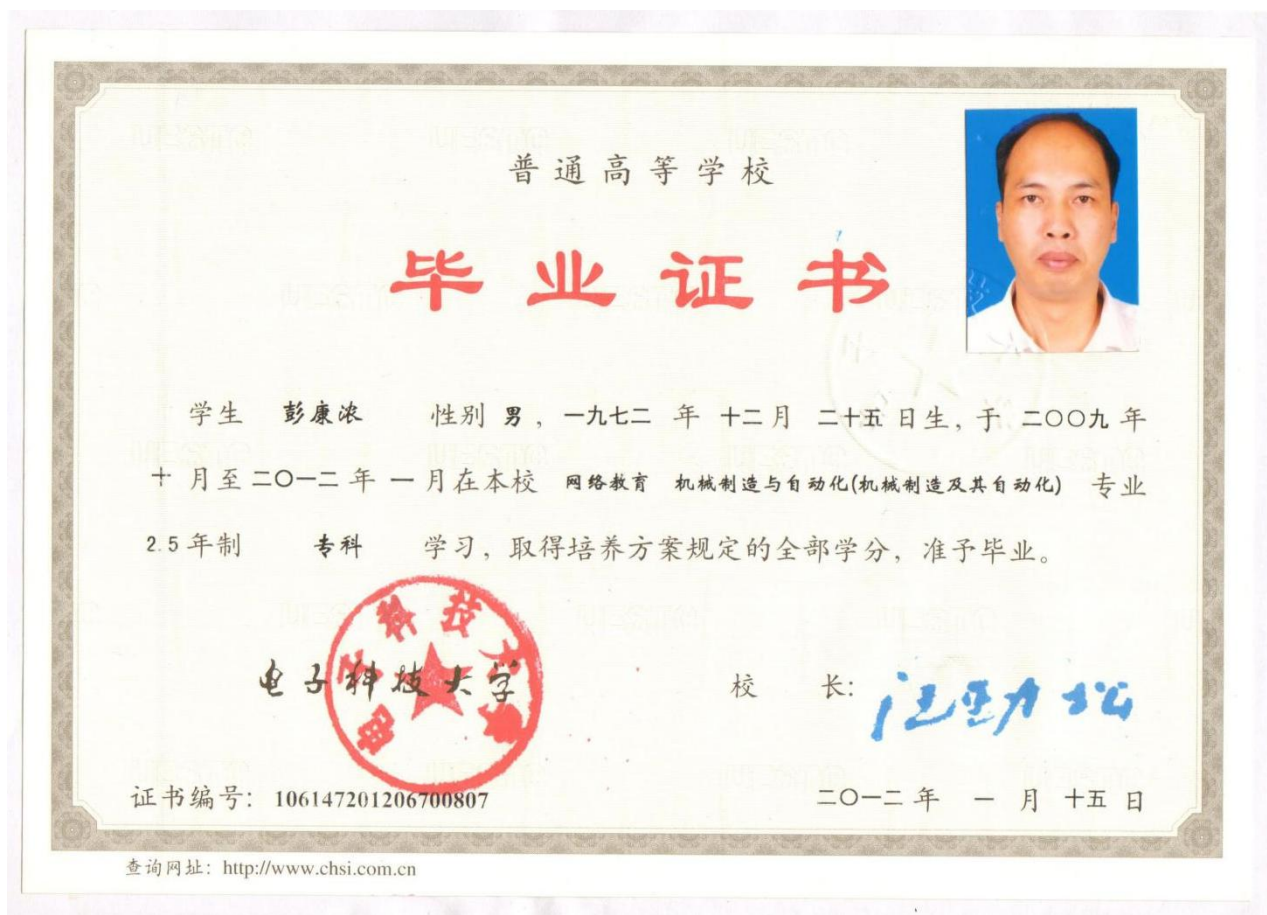 普通高等学校
毕业证书
学生 彭康浓 性别 男，一九七二 年 十二月 二十五 日生，于 二〇〇九 年
十 月至 二〇一二 年 一 月在本校 网络教育 机械制造与自动化(机械制造及其自动化) 专业
2.5 年制 专科 学习，取得培养方案规定的全部学分，准予毕业。
电子科技大学
电子科技大学
校 长: 汪劲松
证书编号: 106147201206700807
二〇一二 年 一 月 十五 日
查询网址: http://www.chsi.com.cn